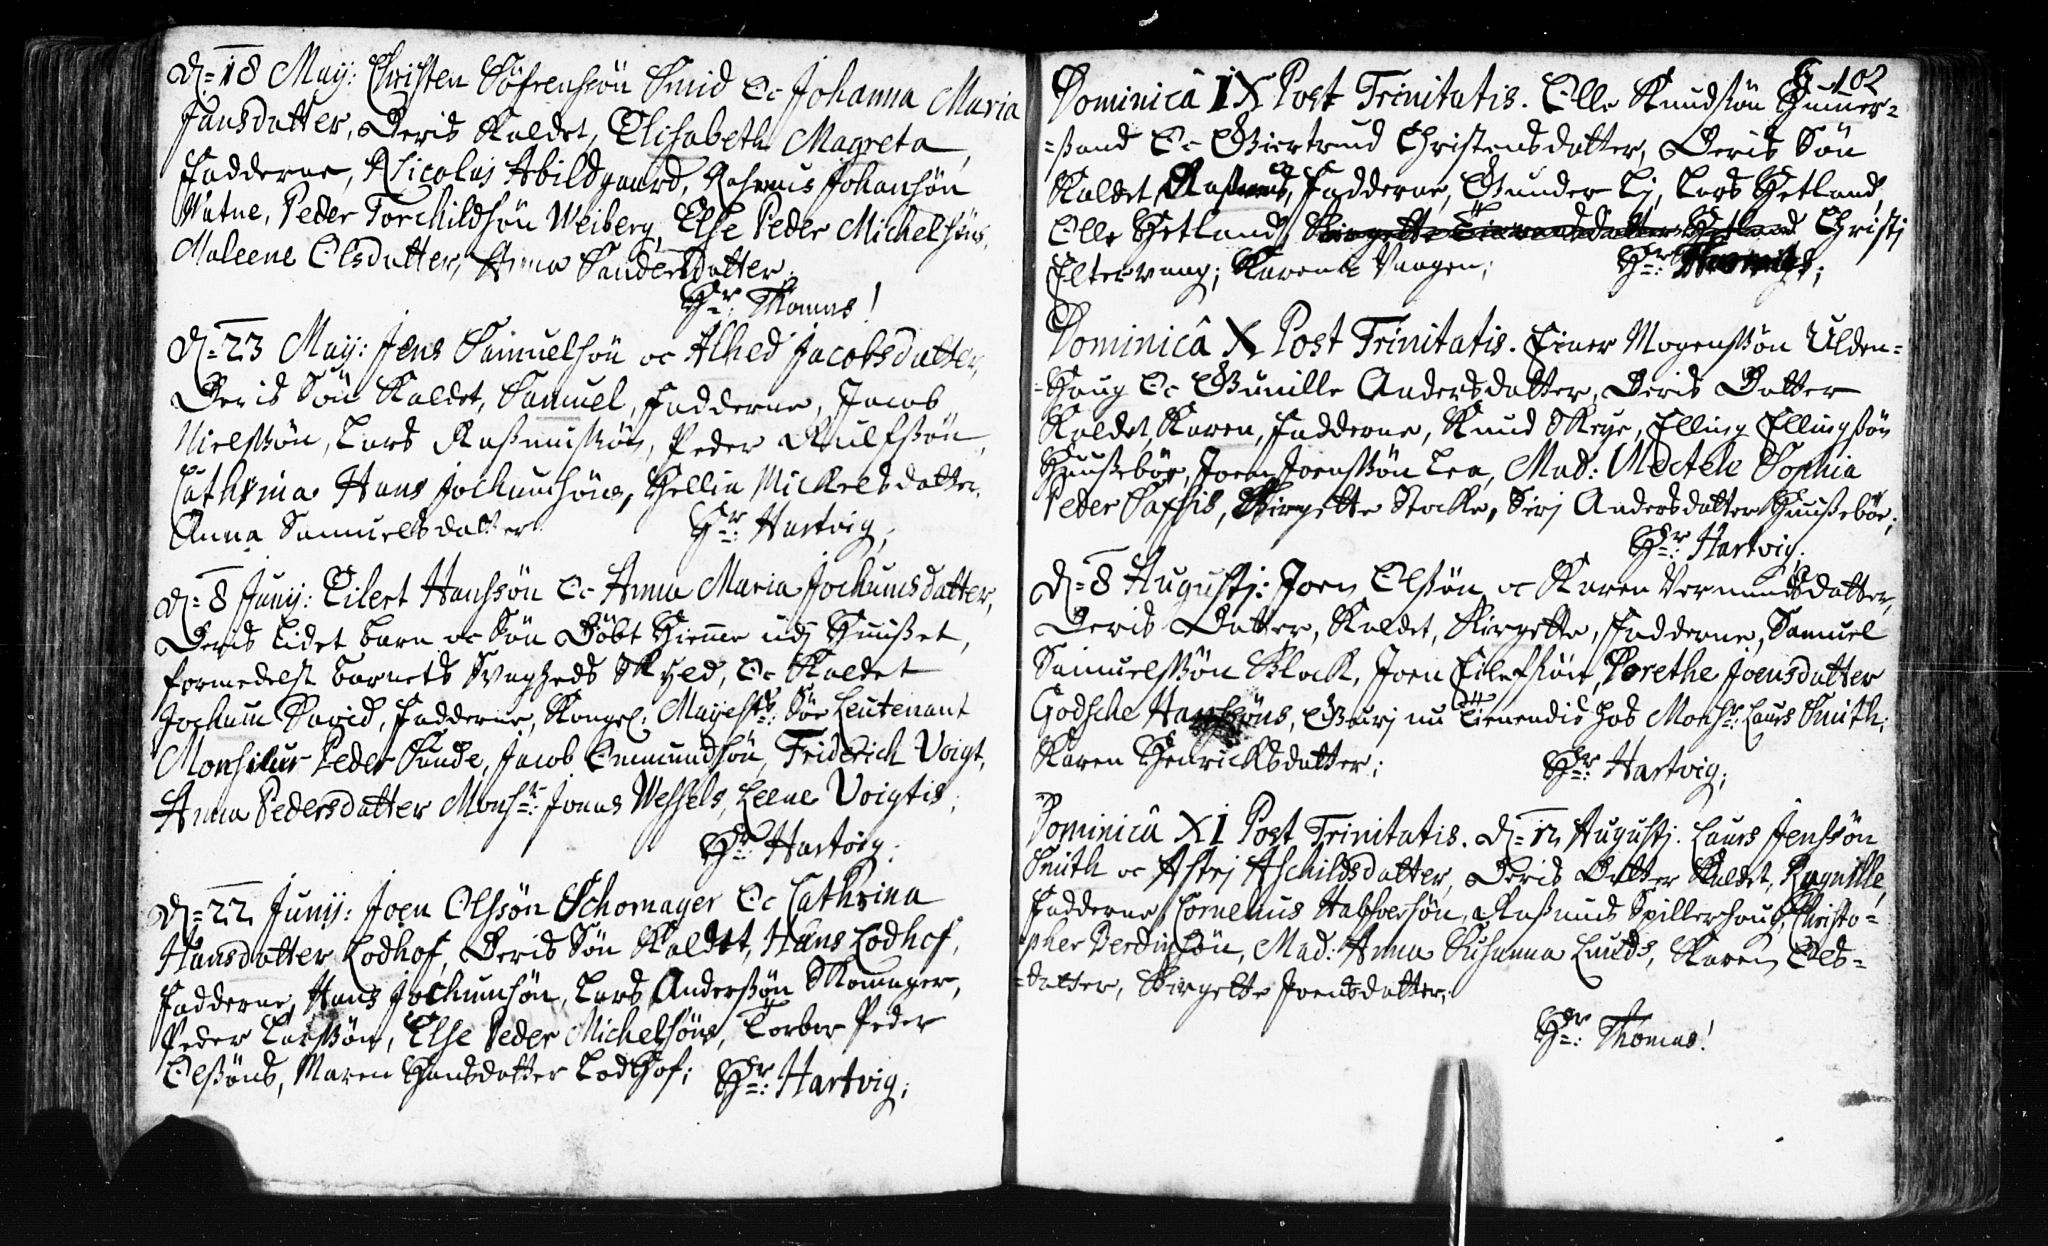 D. 18 Maij: Christen Söfrensön Smid Oc Johanna Maria
Jansdatter, Deris Kaldet, Elisabeth Magreta,
Fadderne, Nicolaj Abildgaard, Rasmus Johansön
Watne, Peder Torchildsön Weiberg, Else Peder Michelsöns,
Maleene Olsdatter, Anna Sandersdatter.
Hr: Thomas!
D. 23 Maij: Jens Samuelsön oc Alhed Jacobsdatter,
Deris Sön Kaldet, Samuel, Fadderne, Jacob
Nielssön, Lars Rasmussön, Peder Rulfssön,
Cathrina Hans Jochumsöns, Hellin Mickelsdatter.
Anna Samuelsdatter
Hr: Hartvig;
D. 8 Junij: Eilert Hanssön Oc Anna Maria Jochumsdatter,
Deris Lidet barn oc Sön Döbt Hiemme udj Huusset,
formedelst barnets Svagheds Skyld, Oc Kaldet
Jochum David, Fadderne, Kongel: Mayests: Söe Leutenant
Monsieur Peder Sunde, Jacob Ommundsön, Friderich Voigt,
Anna Pedersdatter Monsr: Jonas Wessels, Leene Voigtis;
Hr: Hartvig;
D. 22 Junij: Joen Olssön Schomager Oc Cathrina
Hansdatter Lodhof, Deris Sön Kaldet, Hans Lodhof,
Fadderne, Hans Jochumsön, Lars Anderssön Skomager,
Peder Larssön, Else Peder Michelsöns, Torbor Peder
Olssöns, Maren Hansdatter Lodhof; Hr: Hartvig;
102
Dominicâ IX Post Trinitatis. Olle Knudssön Hummer=
=sand Oc Giertrud Christensdatter, Deris Sön
Kaldet, Rasmus, Fadderne, Gunder Lj, Lars Hetland,
Olle Hetland, Birgette Hetland Christj
Eltervaag; Karen Vaagen; Hr:
Dominicâ X Post Trinitatis. Einer Mogenssön Ulden=
=Haug Oc Gunille Andersdatter, Deris Datter
Kaldet, Karen, Fadderne, Knud Skeye, Elling Ellingssön
Huuseböe, Joen Joenssön Lea, Mad: Mectele Sophia
Peder Saxsis, Birgette Stocke, Sirj Andersdatter Huusseböe;
Hr: Hartvig;
D. 8 Augustj: Joen Olssön oc Karen Vermundsdatter,
Deris Datter, Kaldet, Birgette, Fadderne, Samuel
Samuelssön Block, Joen Eilefssön, Dorethe Joensdatter
Godsche Hanssöns, Gurj nu Tienendis hos Monsr: Laurs Smith;
Karen Henricksdatter; Hr: Hartvig;
Dominicâ XI Post Trinitatis. D. 12 Augustj: Laurs Jenssön
Smith oc Astrj Aschildsdatter, Deris Datter Kaldet, Ragnille,
Fadderne, Cornelius Halfversön, Rasmus Spillerhaug, Christo=
=pher Verdinsön, Mad: Anna Susanna Lunds, Karen Ols=
=datter, Birgette Joensdatter;
Hr: Thomas!